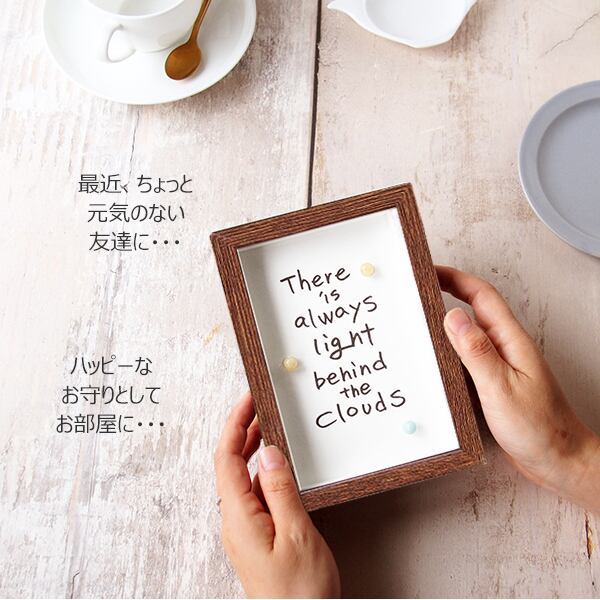 最近、ちょっと
元気のない
友達に・・・
ハッピーな
お守りとして
お部屋に・・・
There
is
always
light
behind
the
Clouds